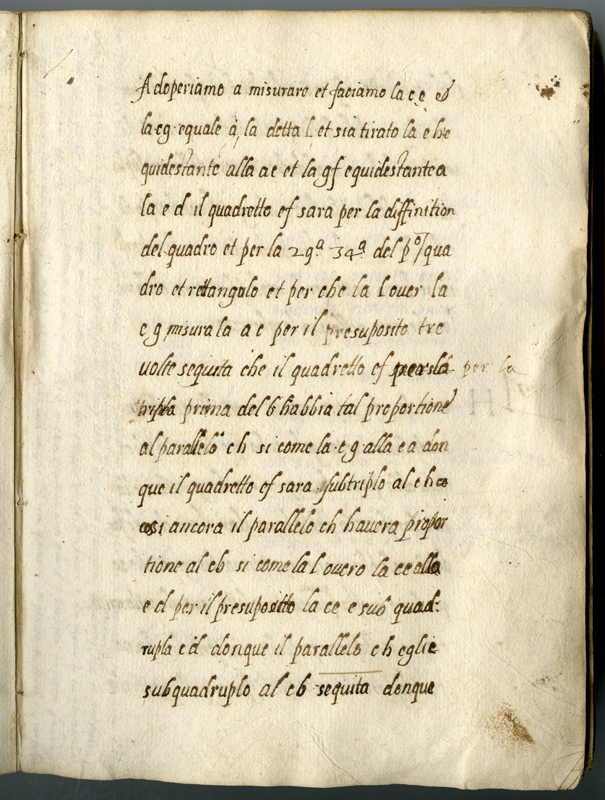 Adoperiamo a misurare et faciamo la c e et
la eg equale à la detta l, et sia tirato la e h e
quidestante alla a e et la gf equidestante a
la e d il quadretto ef sara per la diffinition
del quadro et per la 29ª 34ª del pº qua
dro et rettangolo et per che la l over la
e g misura la a e per il presuposito tre
volte sequita che il quadretto ef per la
prima del 6 habbia tal proportione
al parallelo eh si come la e g alla e a don
que il quadretto ef sara subtriplo al e h
cosi ancora il parallelo ch havera propor
tione al cb si come la l overo la ce alla
e d per il presuposito la ce e sub quad:
rupla e d donque il parallelo ch eglie
subquadruplo al cb sequita donque